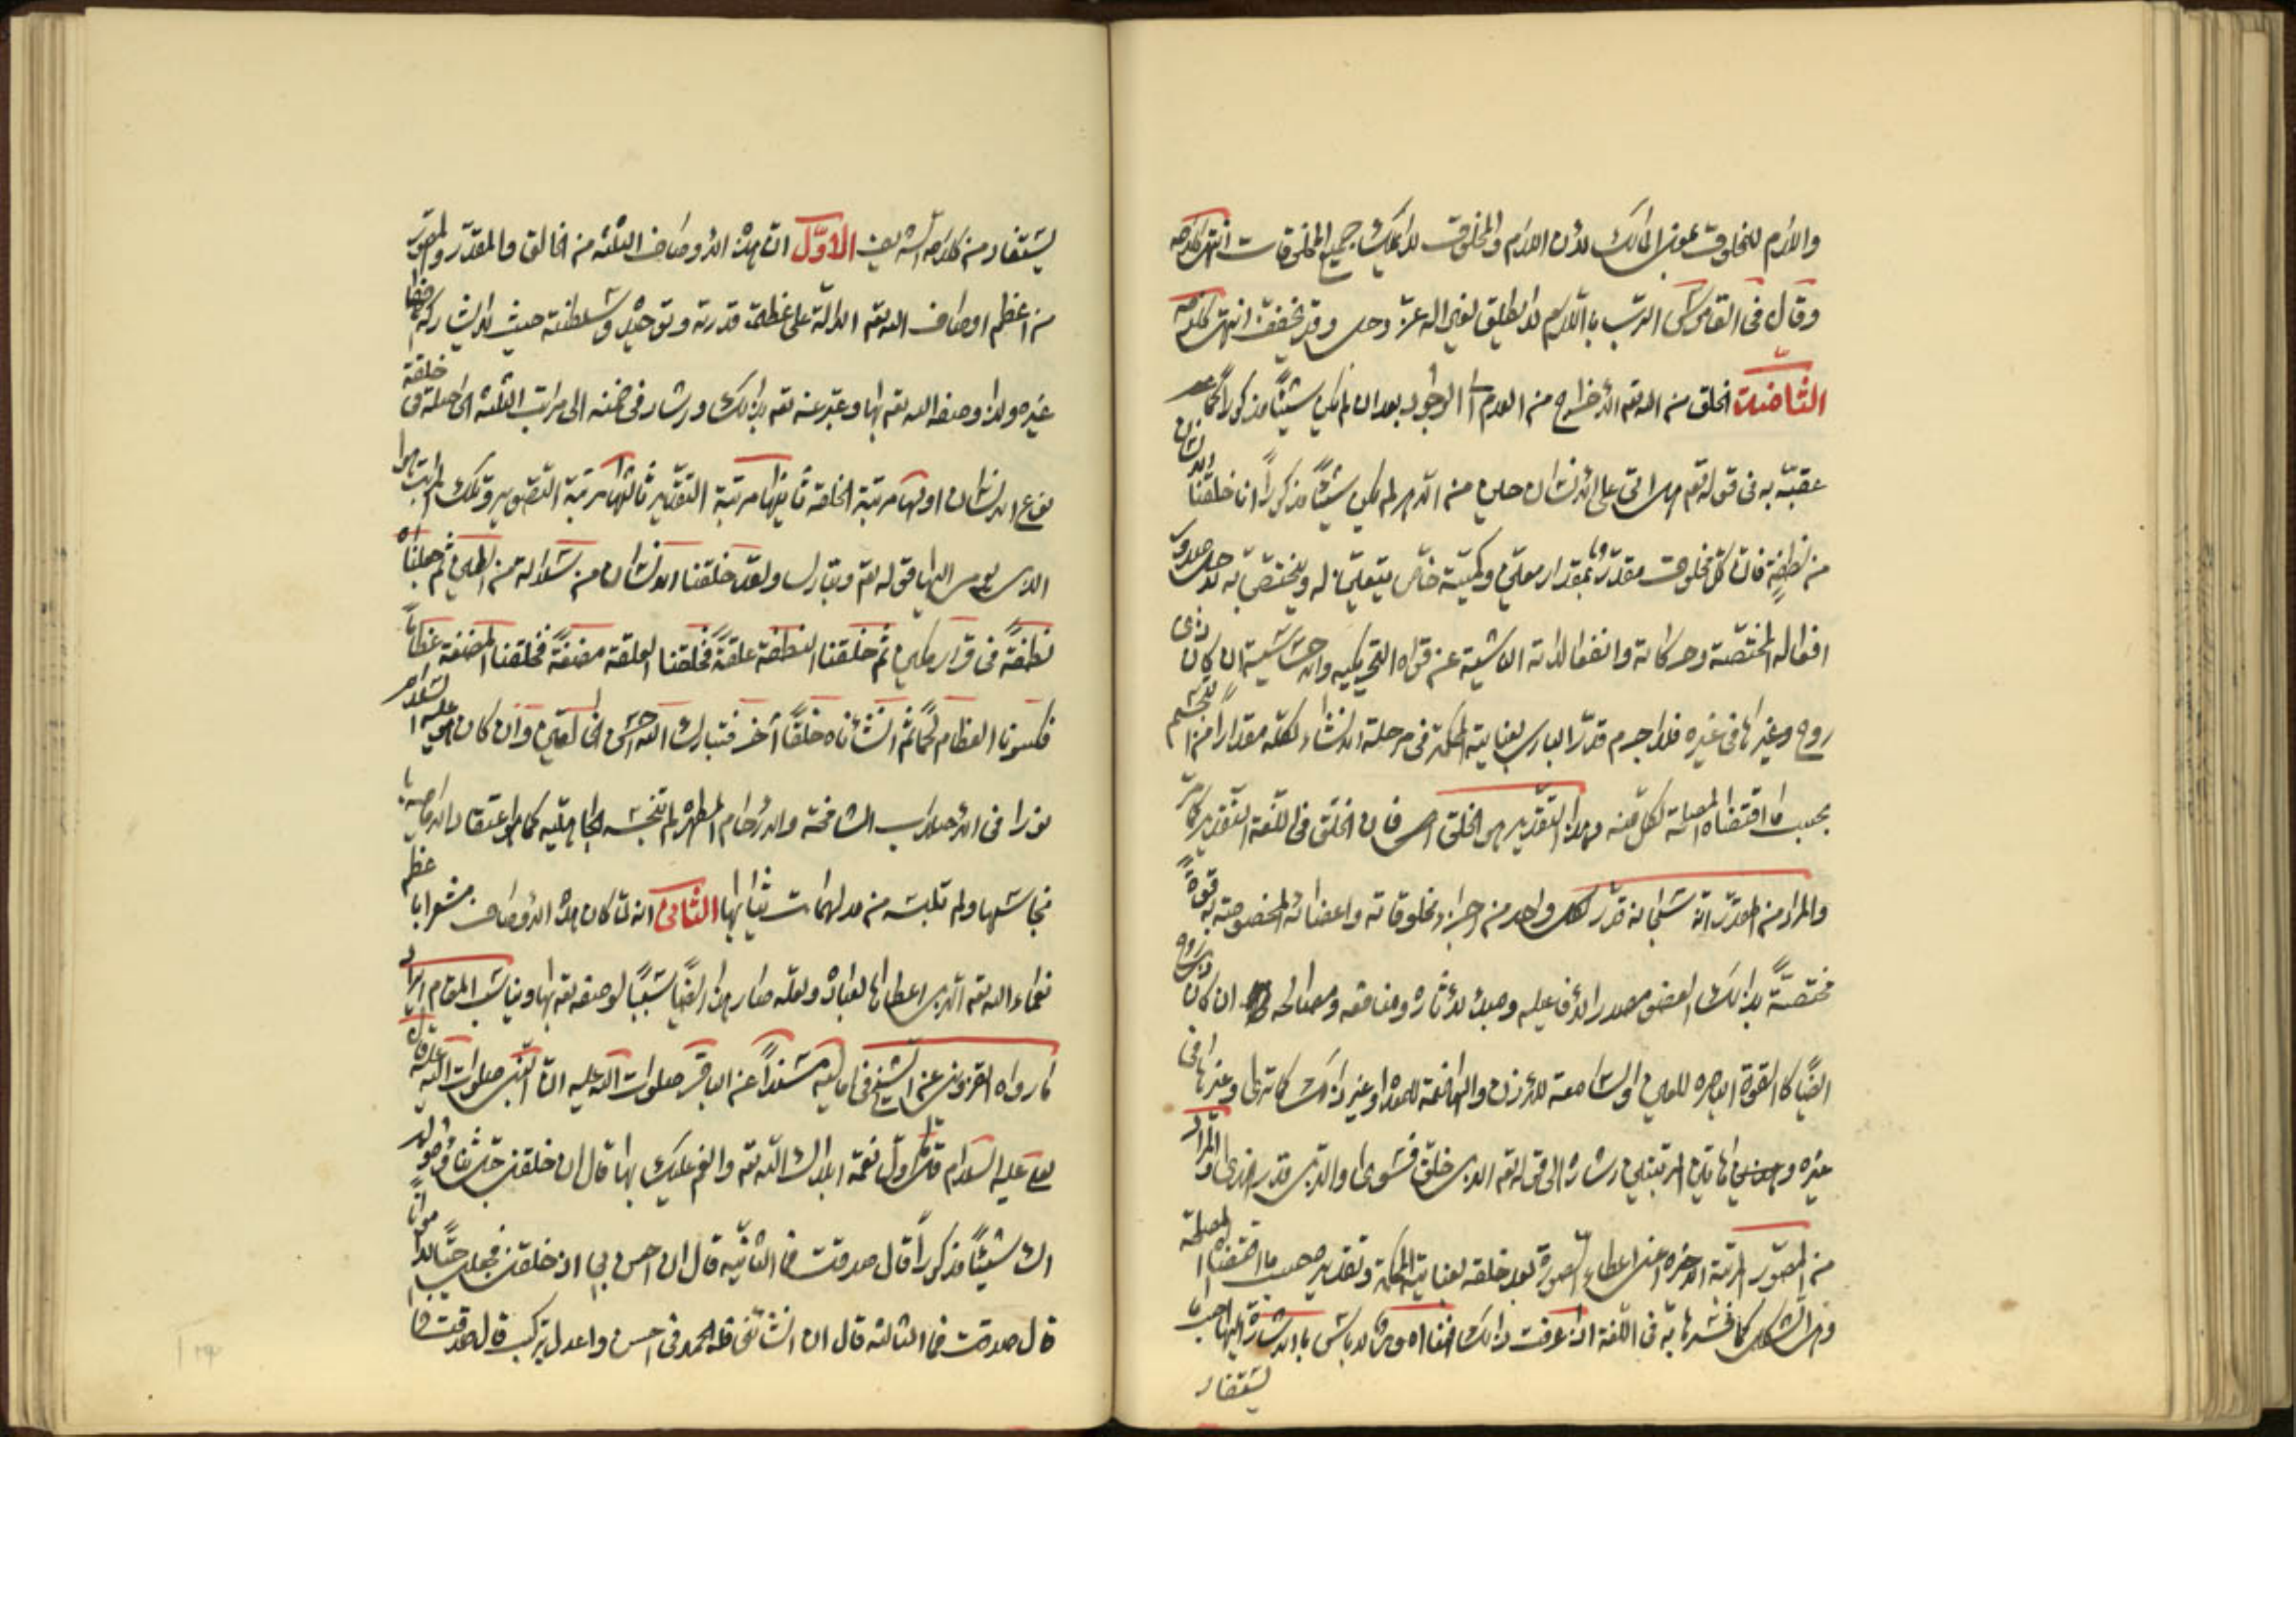 واللام للمخلوق بمعنى المالك لان اللام والمخلوق لا يملك جميع المخلوقات انتهى كلامه
وقال فى القاموس الرب باللام لا يطلق لغير الله عز وجل وقد يخفف انتهى كلامه
الثامنة الخلق من الله تعه الاخراج من العدم الى الوجود بعد ان لم يكن شيئًا مذكورًا كما
عقبه به فى قوله تعه هل اتى على الانسان حين من الدهر لم يكن شيئًا مذكورًا انا خلقنا الانسان
من نطفةٍ فان كل مخلوق مقدر بمقدار معين وكمية خاص يتعين له ويختص به لاجل صدور
افعاله المختصة وحركاته وانفعالاته الناشية عن قواه التحريكيه والحساسية ان كان ذى
روح وغيرها فى غيره فلا جرم قدر البارى بعنايته الحكمة فى مرحلة الانشاء لكله مقدارًا من الجسم
بحسب ما اقتضاه المصلحة لكل منه وهذا التقدير هى الخلق فان الخلق فى اللغة التقدير كما مر
والمراد من المقدر انه سبحانه قدر لكل واحد من اجزاء مخلوقاته واعضائه المخصوصة به قوةً
مختصةً بذالك العضو مصدر الافاعيله ومبدء لاثاره ومنافعه ومصالحه ان كان ذى روح
ايضًا كالقوة الباصره للعين والسامعة للاذن والهاضمة للمعدة وغير ذالك كما ترى وغيرها فى
غيره هاتين المرتبتين اشاره الى قوله تعه الذى خلق فسوى والذى قدر فهدى والمراد
من المصور المرتبة الاخره اعنى اعطاء الصورة بعد خلقه بعناية الحكمة وتقديره بحسب ما اقتضاه المصلحة
وهى الشكل كما فسرها به فى اللغة اذا عرفت ذالك لا باس بالاشارة اليها
يستفاد
يستفاد من كلامه الشريف الاوّل ان هذه الاوصاف الثلثه من الخالق والمقدّر والمصوّر
من اعظم اوصاف الله تعه الدالّة على عظمة قدرته وتوحيده وسلطنته حيث لا يشاركه فيها
غيره ولذا وصف الله تعه بها وعبر عنه تعه بذالك واشار فى ضمنه الى مراتب الثلثه الحاصلة فى خلقة
نوع الانسان اولها مرتبة الخلقة ثانيها مرتبة التقدير ثالثها مرتبة التصوير وتلك المراتب هو
الذى اليها قوله تعه وتبارك ولقد خلقنا الانسان من سلالة من الطين ثم جعلناه
نطفةً فى قرار مكين ثم خلقنا النطفة علقةً فخلقنا العلقة مضغةً فخلقنا المضغة عظامًا
فكسونا العظام لحمًا ثم انشأناه خلقًا آخر فتبارك الله احسن الخالقين وان كان هو عليه السلام
نورا فى الاصلاب الشامخة والارحام المطهره لم تنجسه الجاهليّة كما هو اعتقاد الاماميه
نجاستها ولم تلبسه من مدلهمات ثيابها الثانى انه لمّا كان هذه الاوصاف مشعرا بأعظم
نعماء الله تعه الذى اعطاها لعباده ولعله صار هذا ايضًا سببًا لوصفه تعه بها ويناسب المقام ايراد
ما رواه القزوينى عن الشيخ فى اماليه مسندًا عن الباقر صلوات الله عليه ان النبى صلوات الله عليه قال
لعلى عليه السلام قل اول نعمة ابلاك الله تعه وانعم عليك بها قال ان خلقنى جل ثناؤه ولم
اك شيئًا مذكورًا قال صدقت فما الثانيه قال ان احسن بى اذ خلقنى فجعلنى حيًّا لا مواتًا
قال صدقت فما الثالثه قال ان انشأنى فله الحمد فى احسن واعدل تركيب قال صدقت فما